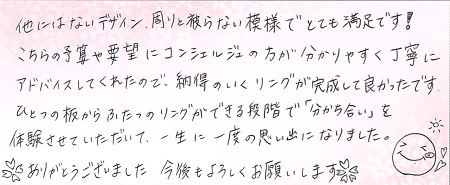 他にはないデザイン、周りと被らない模様でとても満足です!
こちらの予算や要望にコンシェルジュの方が分かりやすく丁寧に
アドバイスしてくれたので、納得のいくリングが完成して良かったです.
ひとつの板からふたつのリングができる段階で「分かち合い」を
体験させていただいて、一生に一度の思い出になりました。
ありがとうございました 今後もよろしくお願いします